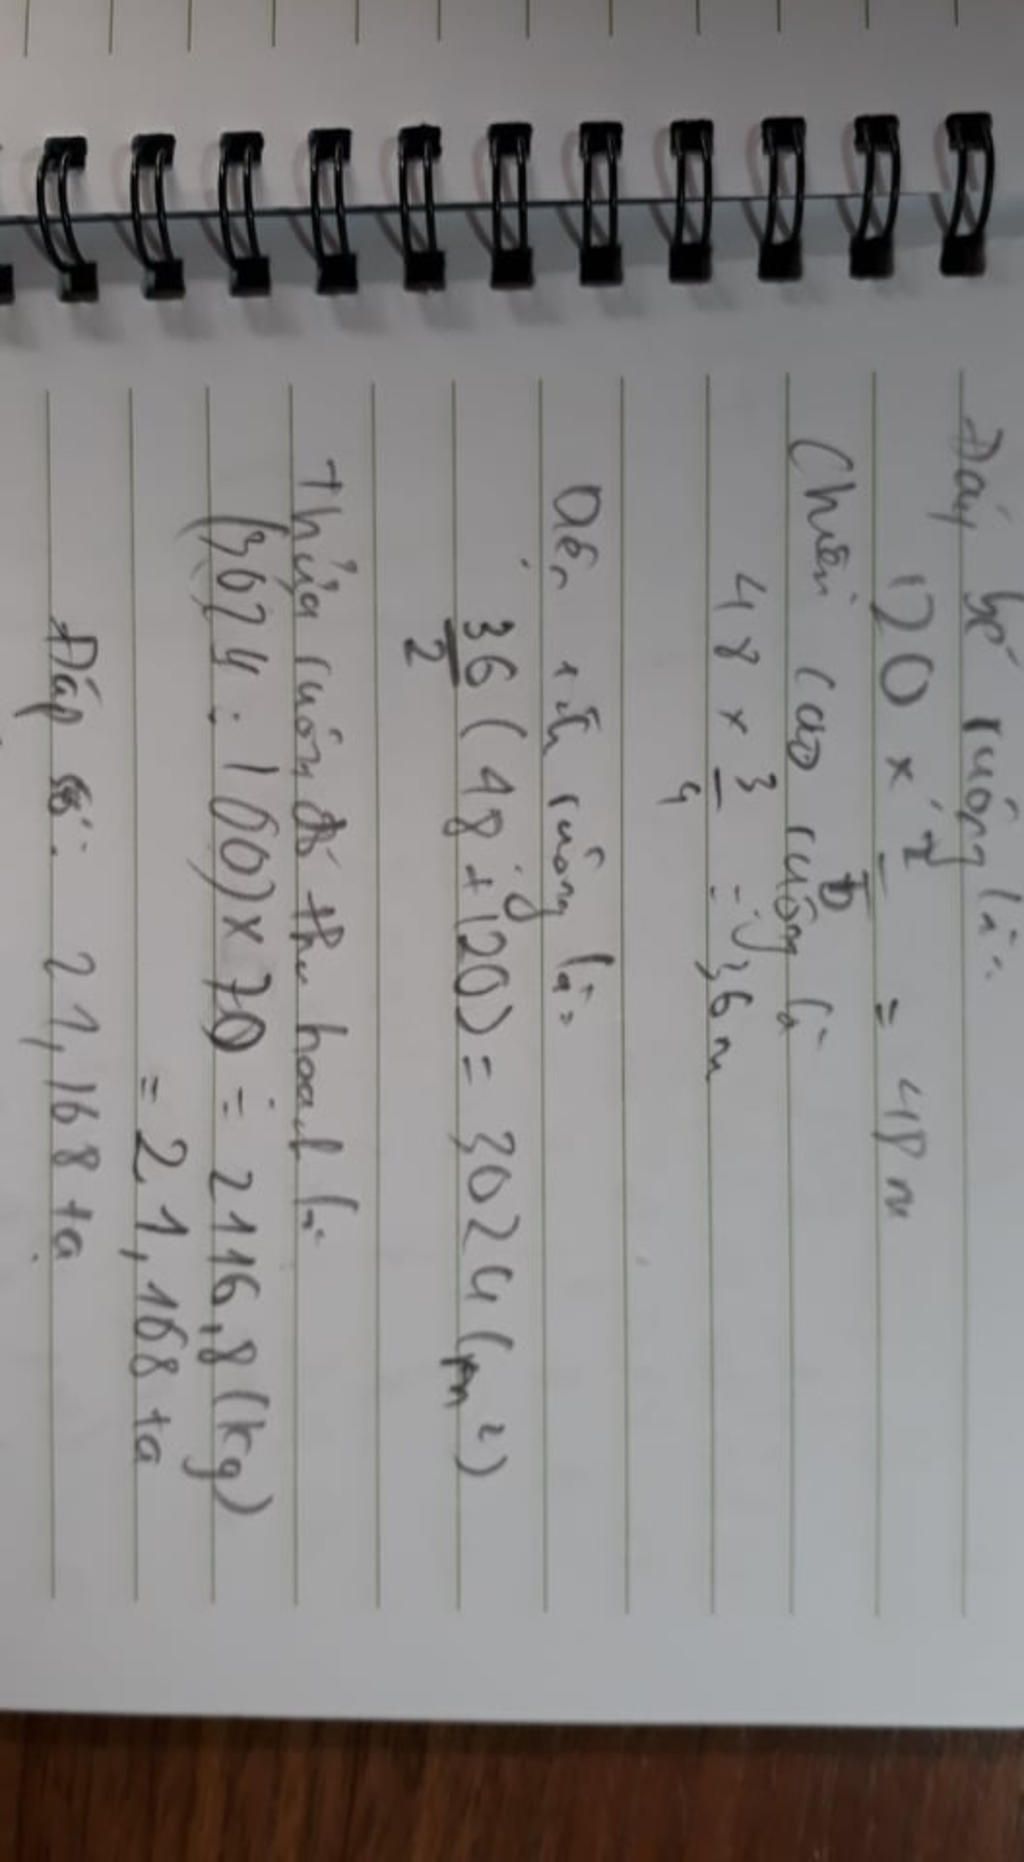 Đáy bé ruộng là:
120 × 2/5 = 48 m
Chiều cao ruộng là
48 × 3/4 = 36 m
Diện tích ruộng là:
36/2 (48 + 120) = 3024 (m²)
Thửa ruộng đó thu hoạch là
(3024 : 100) × 70 = 2116,8 (kg)
= 21,168 tạ
Đáp số: 21,168 tạ